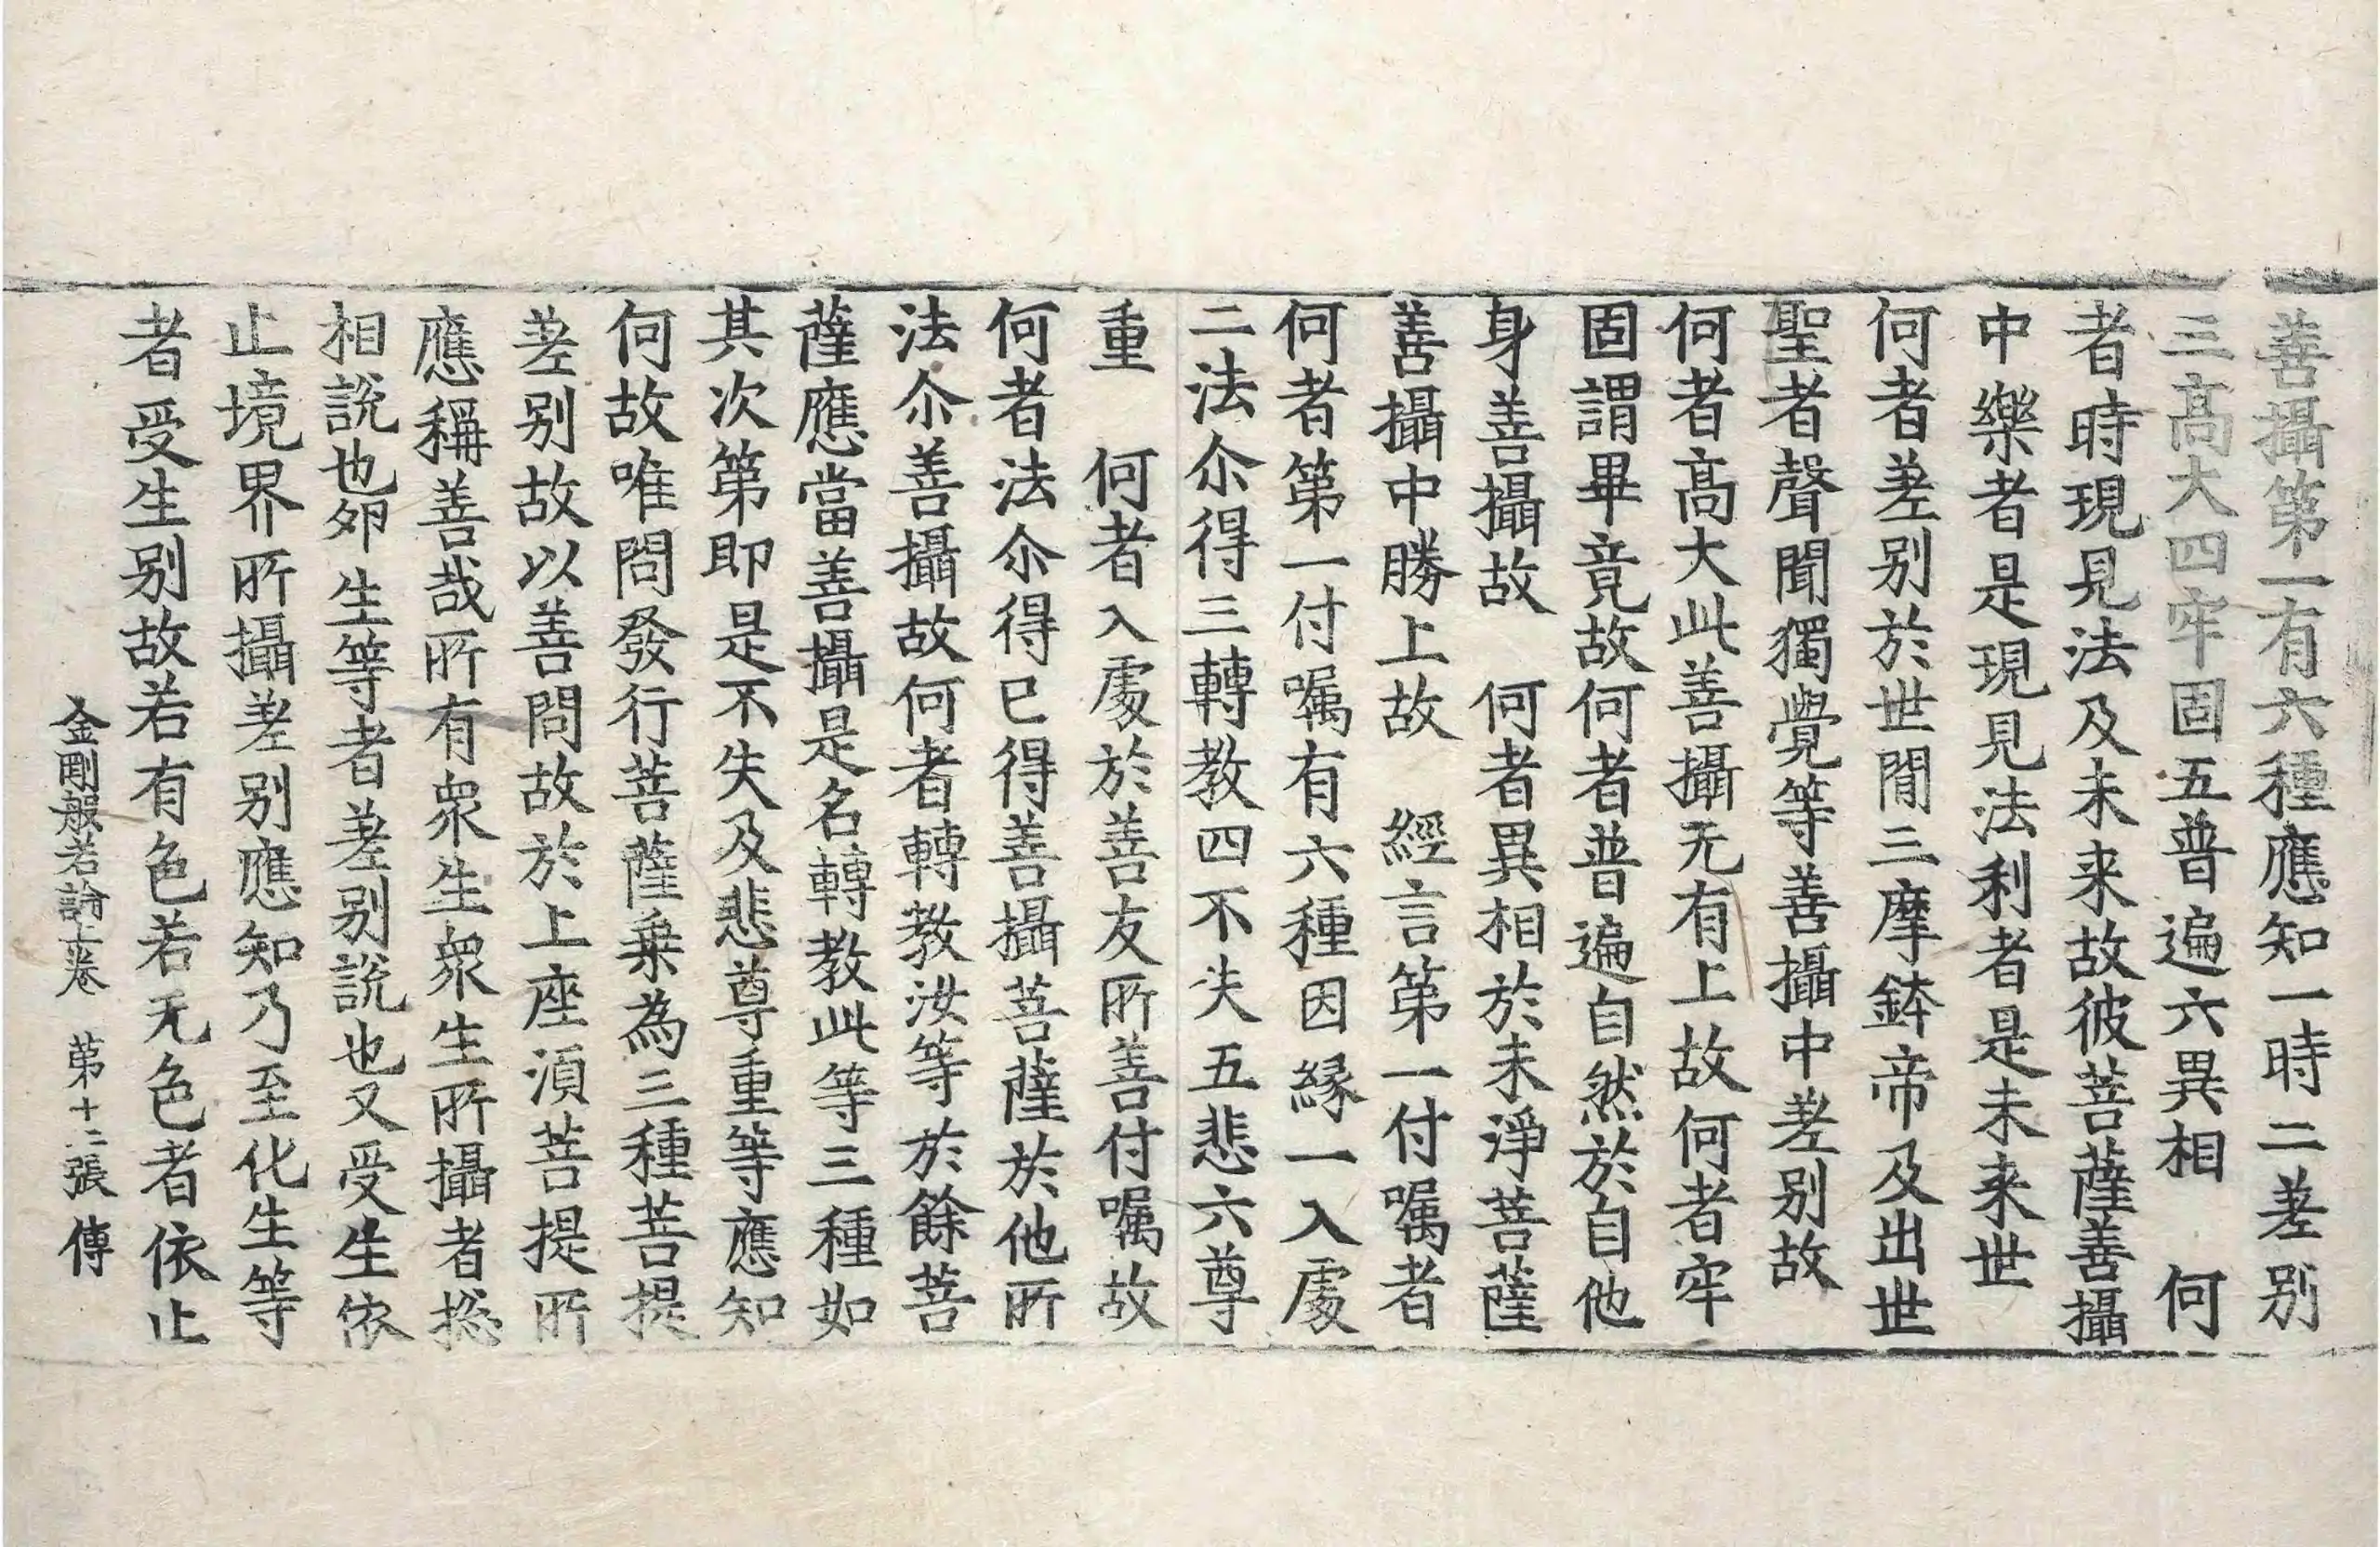 善攝第一有六種應知一時二差别
三髙大四牢固五普遍六異相　何
者時現見法及未来故彼菩薩善攝
中樂者是現見法利者是未来世
何者差别於世間三摩鉢帝及出世
聖者聲聞獨覺等善攝中差别故
何者髙大此善攝无有上故何者牢
固謂畢竟故何者普遍自然於自他
身善攝故　何者異相於未淨菩薩
善攝中勝上故　經言第一付囑者
何者第一付囑有六種因緣一入處
二法尒得三轉教四不失五悲六尊
重　何者入處於善友所善付囑故
何者法尒得已得善攝菩薩於他所
法尒善攝故何者轉教汝等於餘菩
薩應當善攝是名轉教此等三種如
其次第即是不失及悲尊重等應知
何故唯問發行菩薩乗為三種菩提
差别故以善問故於上座湏菩提所
應稱善哉所有衆生衆生所攝者揔
相説也卵生等者差别説也又受生依
止境界所攝差别應知乃至化生等
者受生别故若有色若无色者依止
金剛般若論上卷　第十二張　傳